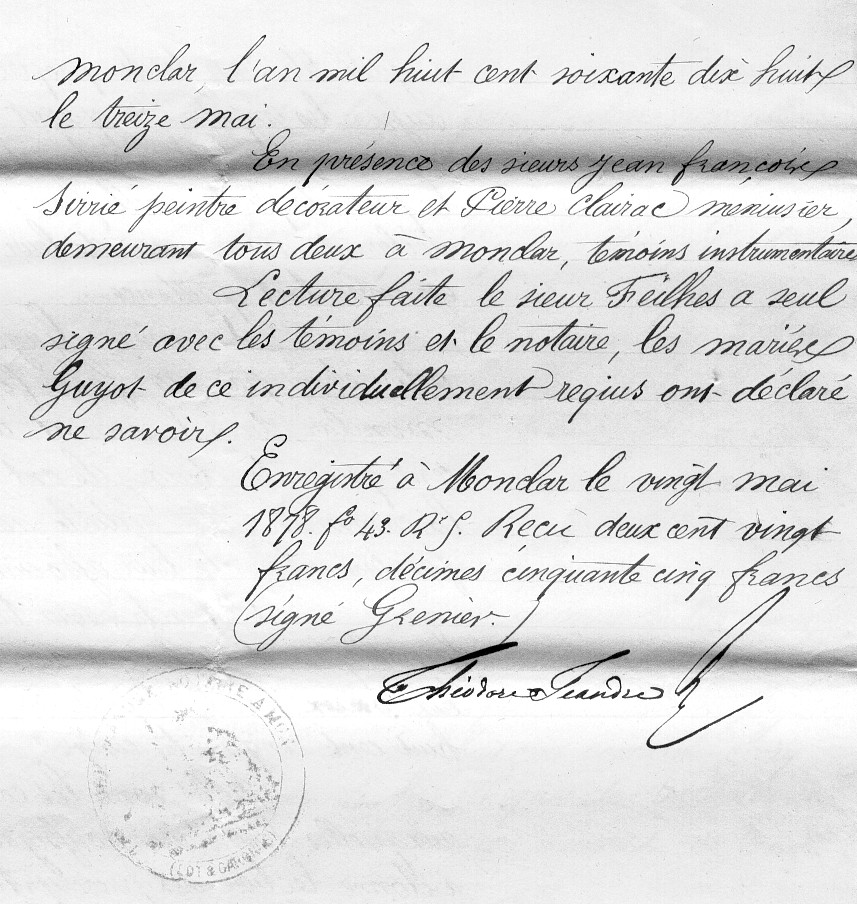 monclar, l'an mil huit cent soixante dix huit
le treize mai.
En présence des sieurs Jean françois
Sirrié peintre décorateur et Pierre Clairac ménusier,
demeurant tous deux à monclar, témoins instrumentaire
Lecture faite le sieur Feilhes a seul
signé avec les témoins et le notaire, les mariés
Guyot de ce individuellement requis ont déclaré
ne savoir.
Enregistré à Monclar le vingt mai
1878. fo 43. Ro
Reçu deux cent vingt
francs, décimes cinquante cinq francs
(signé Grenier.)
Théodore Jeandre
NOTAIRE A MON
(LOT & GARONNE)